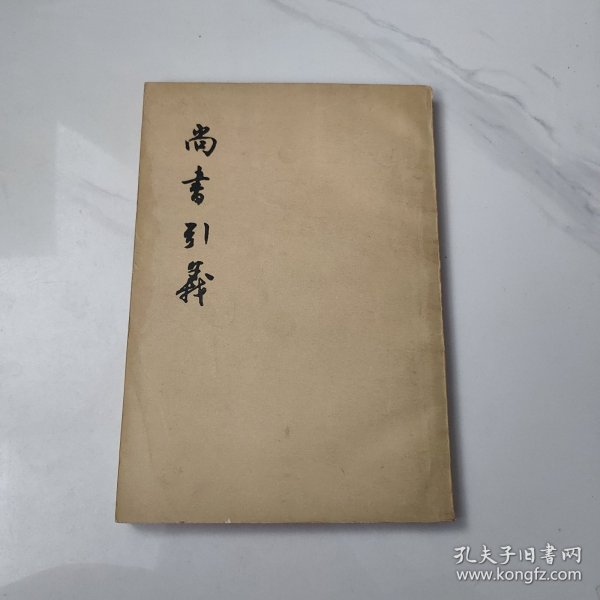 尚书引義
孔夫子旧书网
www.kongfz.com